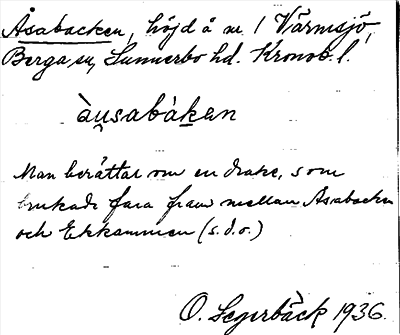 Åsabacken, höjd å nr 1 Värmsjö,
Berga sn, Sunnerbo hd. Kronob. l.
àu̯sabàk̲an
Man berättar om en drake, som
brukade fara fram mellan Åsabacken
och Ekkammen (s.d.o.)
O. Segerbäck 1936.